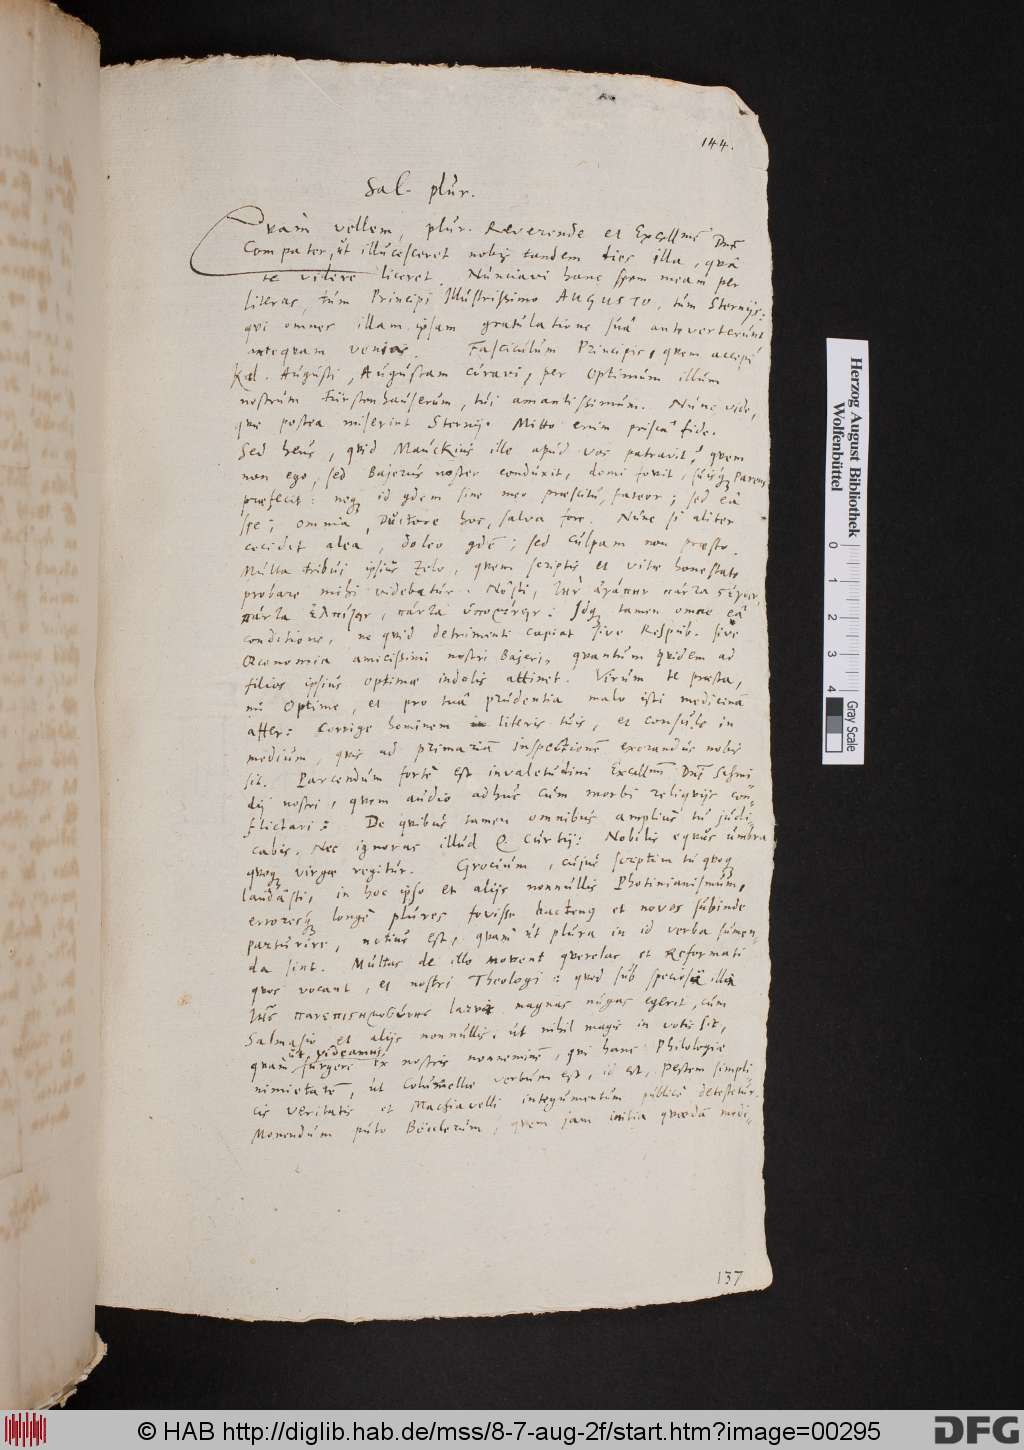 144.
Sal. plúr.
Quàm vellem, plúr. Reverende et Excellme Dne
Compater, út illúcesceret nobis tandem dies illa, quâ
te videre liceret. Núnciavi hanc spem meam per
literas, túm Principi Illústrissimo AUGUSTO, túm Sternijs:
qui omnes illam ipsam gratúlatione súâ antevertérúnt
antequam venias. Fascicúlum Principis, quem accepi
Kal. Aúgústi, Aúgústam cúravi, per optimúm illúm
nostrúm fúrstenhaúserúm, túi amantissimúm. Núnc vide,
que postea miserint Sternij. Mitto enim priscâ fide.
Sed heús, quid Maúckiús ille apúd vos patravit? quem
non ego, sed Bajerús noster condúxit, domi fovit, Parens
præfecit: neqz id qdem sine meo præscitú, fateor; sed eâ
spe; omnia, Dúctore hoc, salva fore. Núnc si aliter
cecidit alea, doleo qdē; sed cúlpam non præsto.
Múlta tribúi ipsiús zelo, quem scriptis et vitæ honestate
probare mihi videbatúr. Nôsti, τὴν ἀγάπην πάντα στέγειν,
πάντα ἐλπίζειν, πάντα ὑπομένειν: Idqz tamen omne eâ
conditione, ne quid detrimenti capiat sive Respúb. sive
Œconomia amicissimi nostri Bajeri, quantúm quidem ad
filios ipsiús optimæ indolis attinet. Verúm te præsta,
nú optime, et pro túâ prúdentia malo isti medicinā
affer: Corrige hominem literis túis, et consúle in
mediúm, quis ad primariā inspectionē exorandús nobis
sit. Parcendúm fortè est invaletúdini Excellmi Dni Schmi
dij nostri, quem aúdio adhúc cúm morbi reliqvijs con-
flictari: De quibús tamen omnibús ampliús tú júdi-
cabis. Nec ignoras illúd Q Cúrtij: Nobilis equús úmbra
quoqz virgæ regitúr. Grociúm, cújús scriptā tú quoqz
laúdâsti, in hoc ipso et alijs nonnúllis Photinianismúm,
erroresqz longè plúres fovisse hactenqz et novos súbinde
partúrire, notiús est, quàm út plúra in id verba súmen-
da sint. Múltas de illo movent querelas et Reformati
quos vocant, et nostri Theologi: quod súb speciosâ illâ
magnas núgas egerit, cúm
Salmasio et alijs nonnúllis. út nihil magis in votis sit,
quàm út videamús súrgere ex nostris nonneminē, qui hanc Philologiæ
nimietatē, út Colúmellæ verbúm est, id est, pestem simpli
cis veritatis et Machiavelli integúmentúm públicè detestetúr.
Monendúm púto Bœclerúm, quem jam initia quædā medi-
137
Herzog August Bibliothek
Wolfenbüttel
0 1 2 3 4
Gray Scale
© HAB http://diglib.hab.de/mss/8-7-aug-2f/start.htm?image=00295
DFG